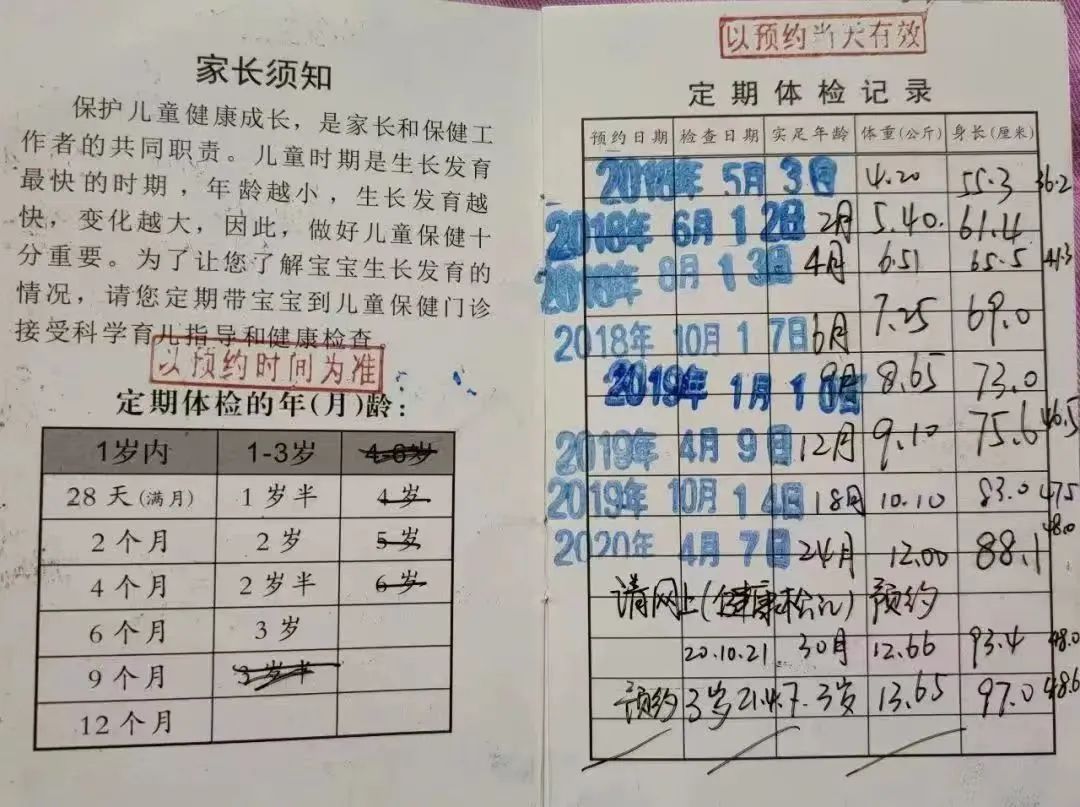 家长须知
保护儿童健康成长，是家长和保健工
作者的共同职责。儿童时期是生长发育
最快的时期，年龄越小，生长发育越
快，变化越大，因此，做好儿童保健十
分重要。为了让您了解宝宝生长发育的
情况，请您定期带宝宝到儿童保健门诊
接受科学育儿指导和健康检查。
以预约时间为准
定期体检的年(月)龄：
1岁内 1-3岁 4-6岁
28天(满月) 1岁半 4岁
2个月 2岁 5岁
4个月 2岁半 6岁
6个月 3岁
9个月 3岁半
12个月
以预约当天有效
定期体检记录
预约日期 检查日期 实足年龄 体重(公斤) 身长(厘米)
2018年 5月 3日 4.20 55.3 36.2
2018年 6月 12日 2月 5.40 61.4
2018年 8月 13日 4月 6.51 65.5 41.3
2018年 10月 17日 6月 7.25 69.0
2019年 1月 10日 9月 8.65 73.0
2019年 4月 9日 12月 9.10 75.6 46.5
2019年 10月 14日 18月 10.10 83.0 47.5
2020年 4月 7日 24月 12.00 88.1 48.0
请网上(健康松江)预约
20.10.21 30月 12.66 93.4 48.0
预约 3岁 21.4.7 3岁 13.65 97.0 48.6